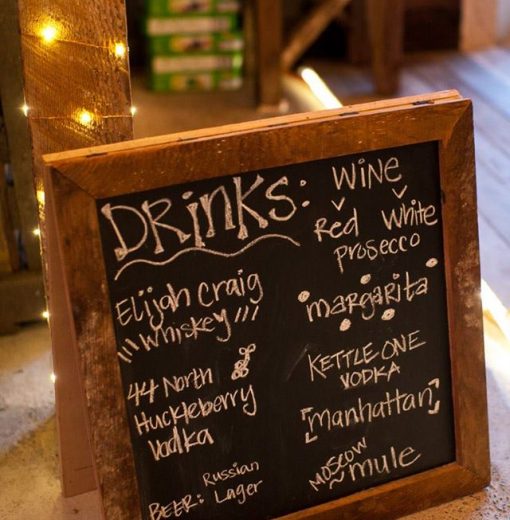 DRINKS:
Elijah Craig
Whiskey
44 North
Huckleberry
Vodka
BEER: Russian
Lager
WINE
Red White
prosecco
margarita
KETTLE ONE
VODKA
manhattan
MOSCOW
mule